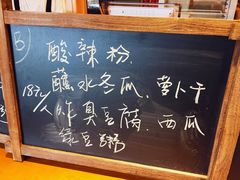 B
酸辣粉.
蘸水冬瓜. 萝卜干
18元/人 炸臭豆腐. 西瓜
绿豆粥